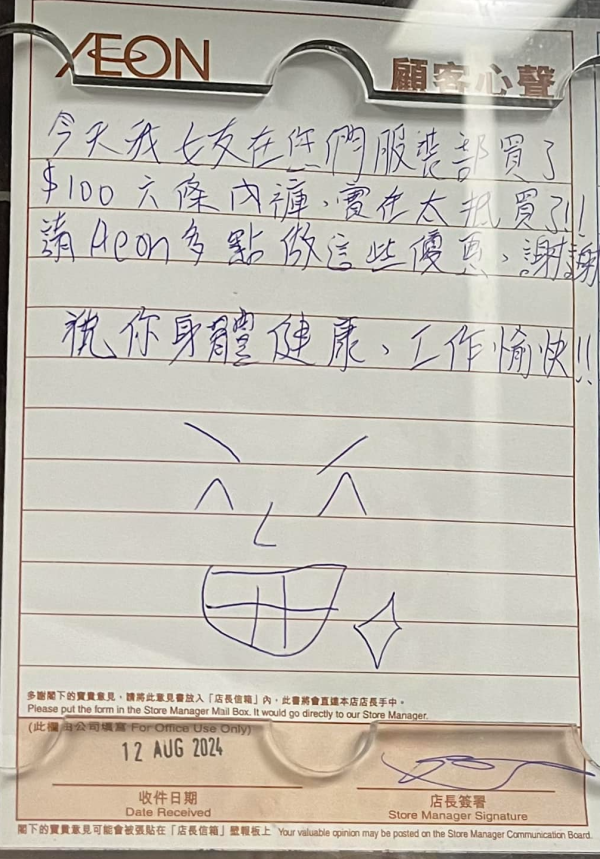 ÆON
顧客心聲
今天我女友在您們服裝部買了
$100六條內褲、實在太抵買了!!
請Aeon多點做這些優惠、謝謝
祝你身體健康、工作愉快!!
多謝閣下的寶貴意見，請將此意見書放入「店長信箱」內，此書將會直達本店店長手中。
Please put the form in the Store Manager Mail Box. It would go directly to our Store Manager.
(此欄由公司填寫 For Office Use Only)
12 AUG 2024
收件日期
Date Received
店長簽署
Store Manager Signature
閣下的寶貴意見可能會被張貼在「店長信箱」壁報板上 Your valuable opinion may be posted on the Store Manager Communication Board.